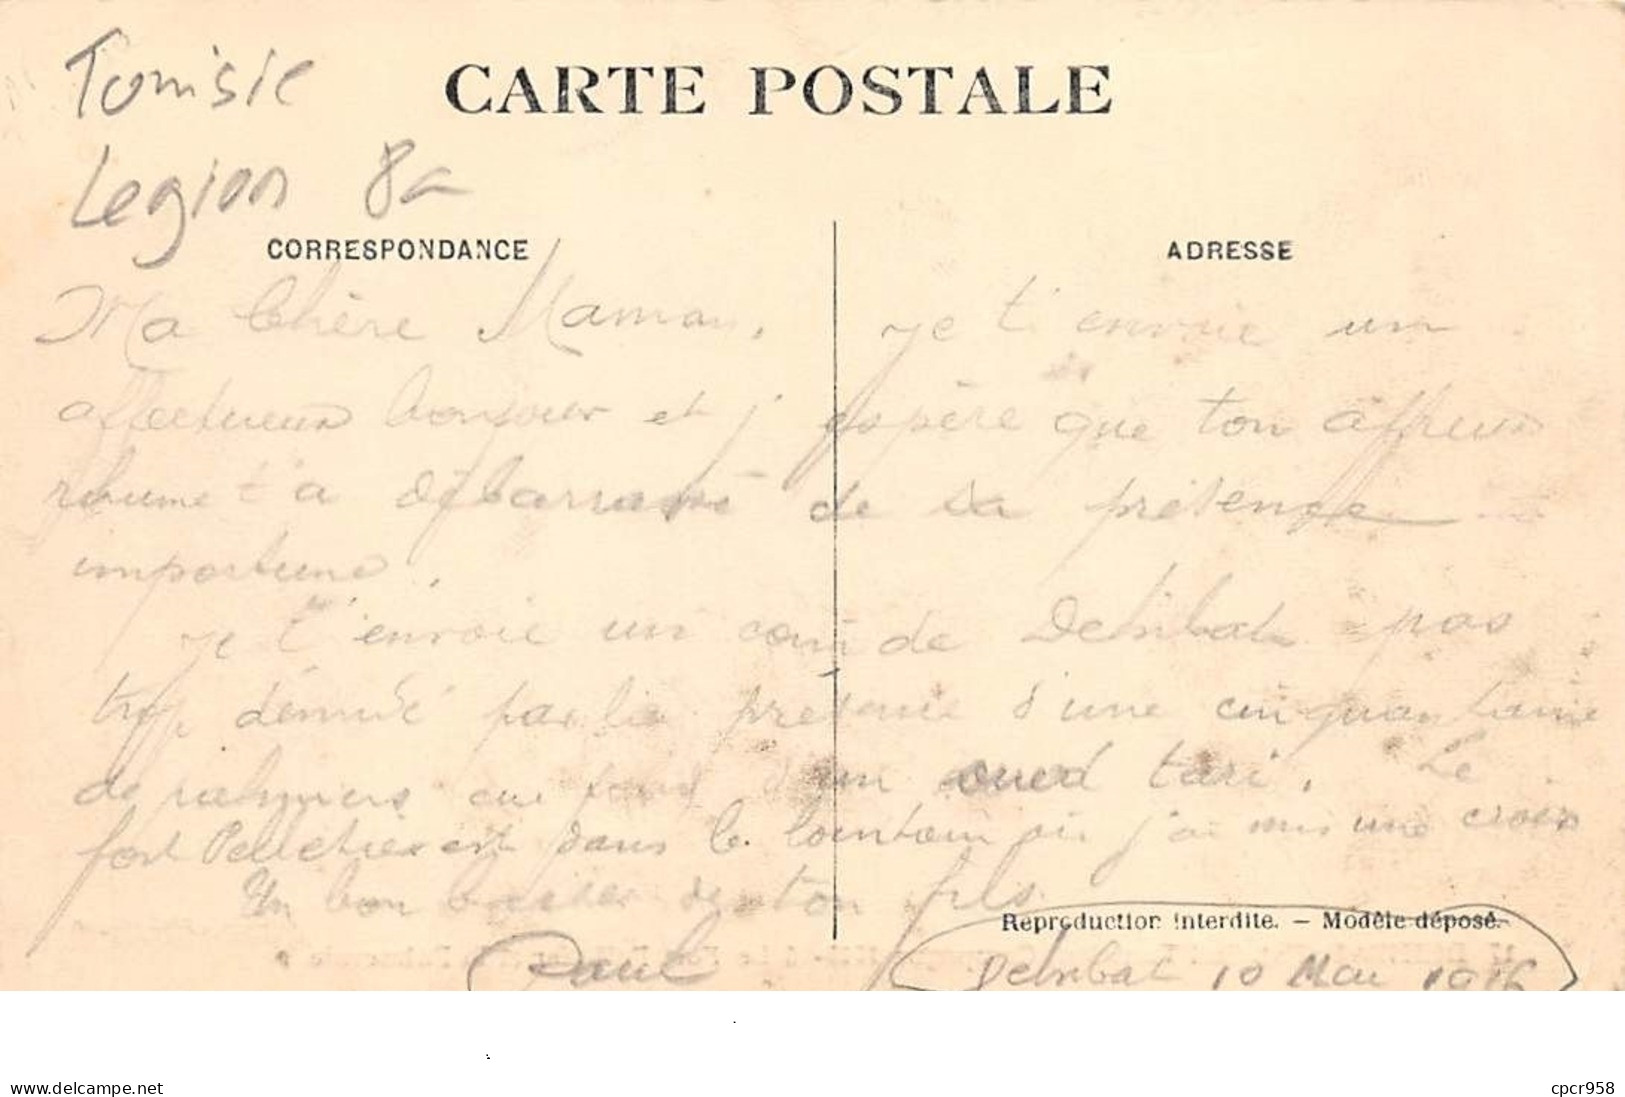 Tunisie
CARTE POSTALE
Legion 8c
CORRESPONDANCE
ADRESSE
Ma Chère Maman, Je t'envoie un
affectueux bonjour et j'espère que ton affreux
rhume t'a débarrassé de sa présence
importune.
Je t'envoie un coin de Dehibat pas
trop dénudé par la présence d'une cinquantaine
de palmiers au fond d'un oued tari. Le
fort Pelletier est dans le lointain où j'ai mis une croix
Un bon baiser de ton fils
Reproduction interdite. — Modèle déposé.
Paul
Dehibat 10 Mai 1916
www.delcampe.net
cpcr958